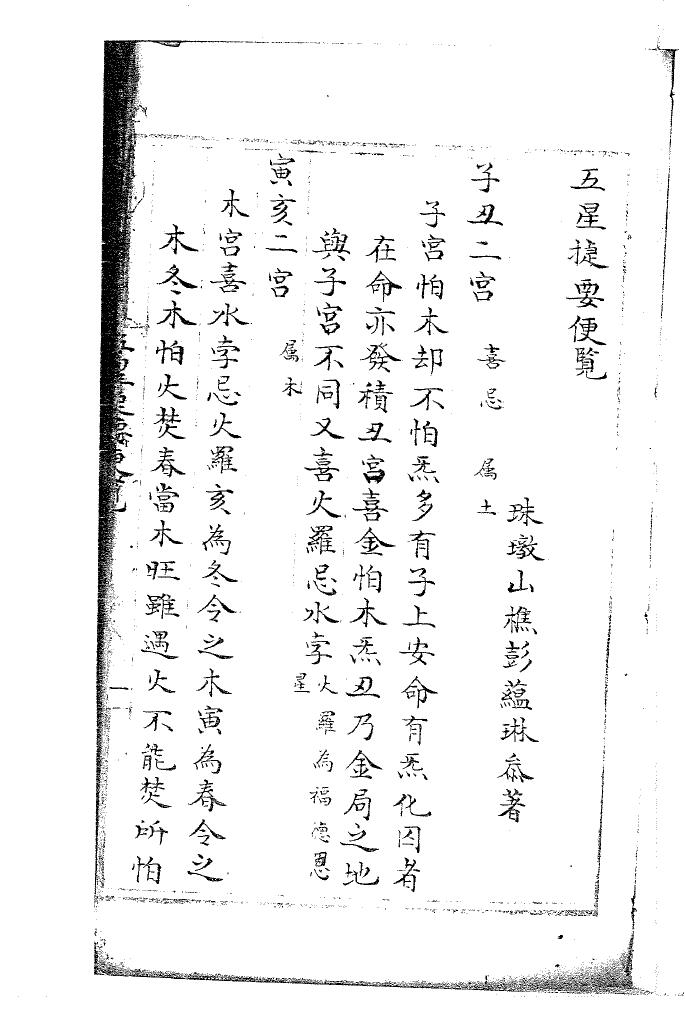 五星捷要便覧
珠墩山樵彭蘊琳忝著
子丑二宮 喜忌 属土
子宮怕木却不怕炁多有子上安命有炁化囚者
在命亦發積丑宮喜金怕木炁丑乃金局之地
與子宮不同又喜火羅忌水孛 火羅為福德恩
星
寅亥二宮 属木
木宮喜水孛忌火羅亥為冬令之木寅為春令之
木冬木怕火焚春當木旺雖遇火不能焚所怕